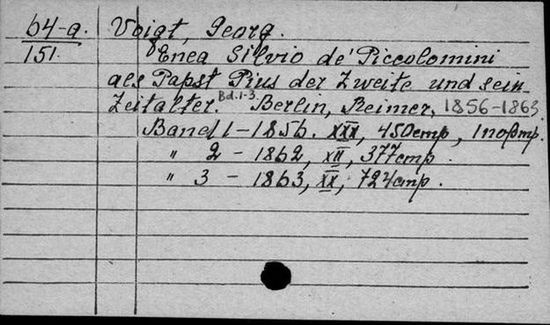 64-a. Voigt, Georg.
151. Enea Silvio de' Piccolomini
als Papst Pius der Zweite und sein
Zeitalter. Bd.1-3 Berlin, Reimer, 1856-1863
Band 1-1856. XXI, 450 стр, 1 портр.
" 2 - 1862, XII, 377 стр.
" 3 - 1863, XX, 724 стр.